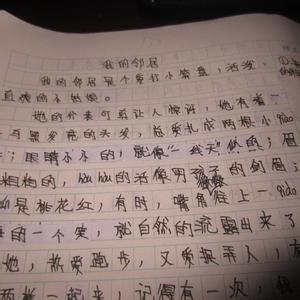 我的邻居
我的邻居是个爱打小算盘,活发、
直爽的小姑娘。
她的外表可真让人惊讶,她有着一
黑发亮的头发,总爱扎成两根小
眼睛小小的,就像"一线天"似的;眉
粗粗的,活像男孩子的剑眉
是桃花红,有时,嘴角在上一qiao
的一个笑,就自然的流露出来了
她,热爱跑步,又爱捉弄人,
起来,记得有一次,